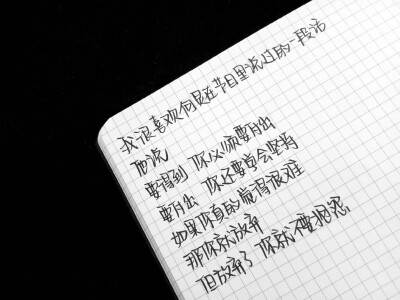 我很喜欢何炅在节目里说过的一段话
他说
要得到 你必须要付出
要付出 你还要学会坚持
如果你真的觉得很难
那你就放弃
但放弃了 你就不要抱怨